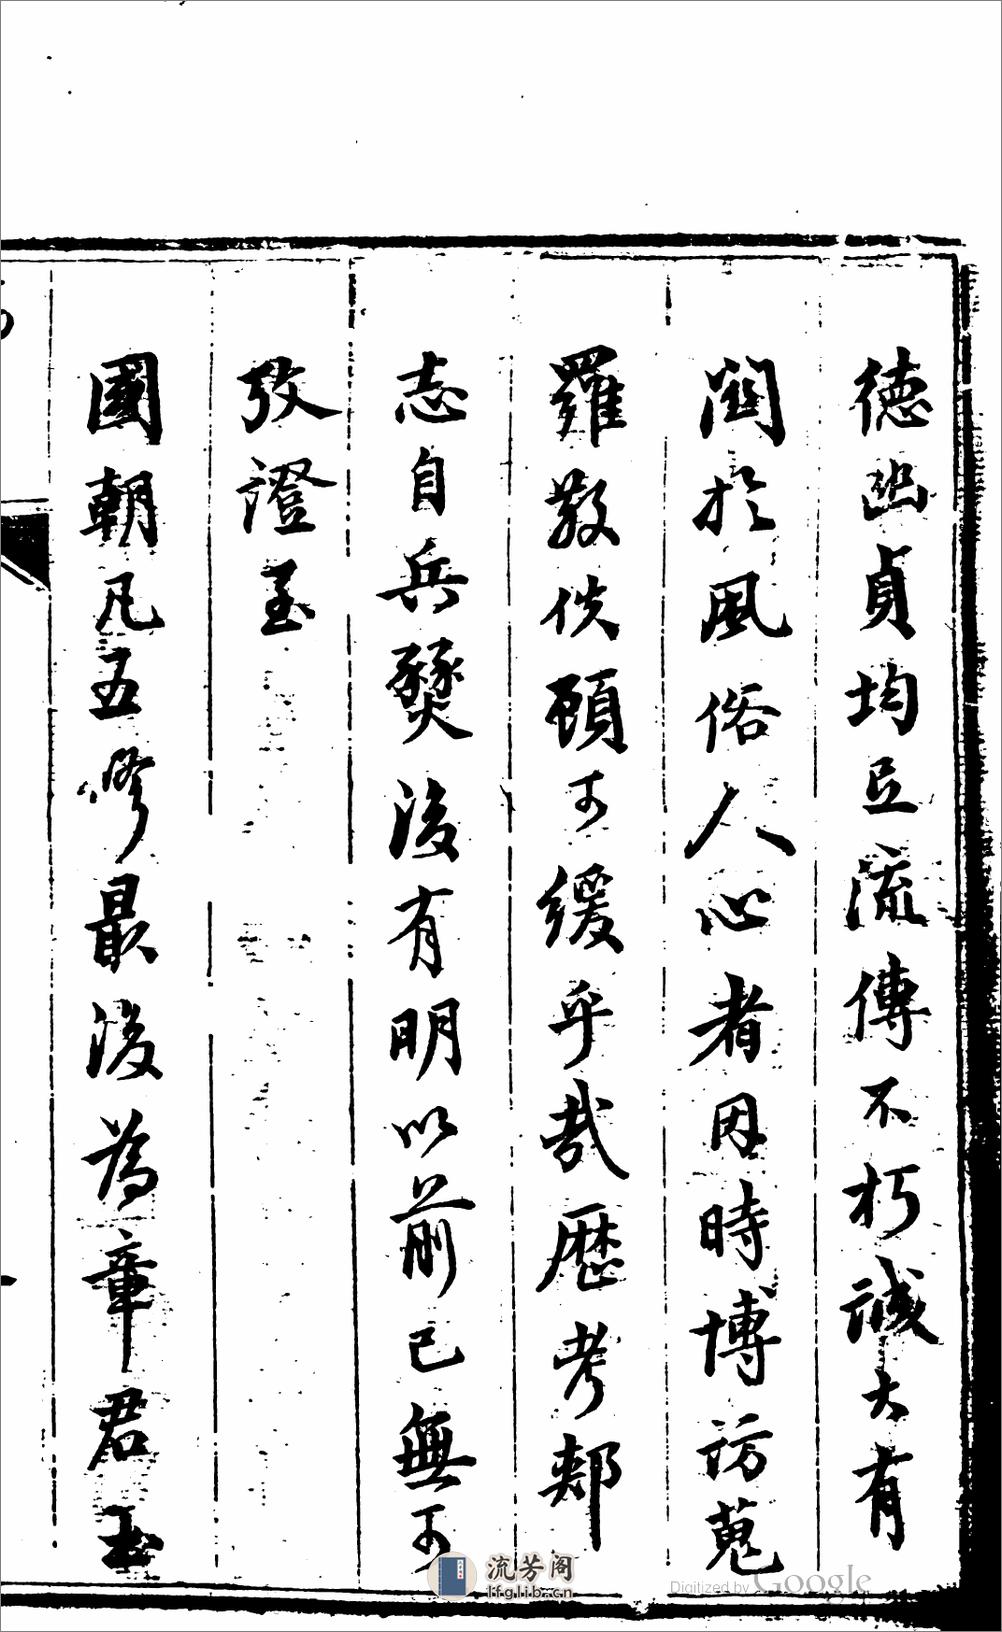 德幽貞均足流傳不朽誠大有
關於風俗人心者因時博訪蒐
羅散佚顧可緩乎哉歷考郟
志自兵燹後有明以前已無可
攷證至
國朝凡五修最後為章君玉
流芳阁
lfglib.cn
Digitized by Google